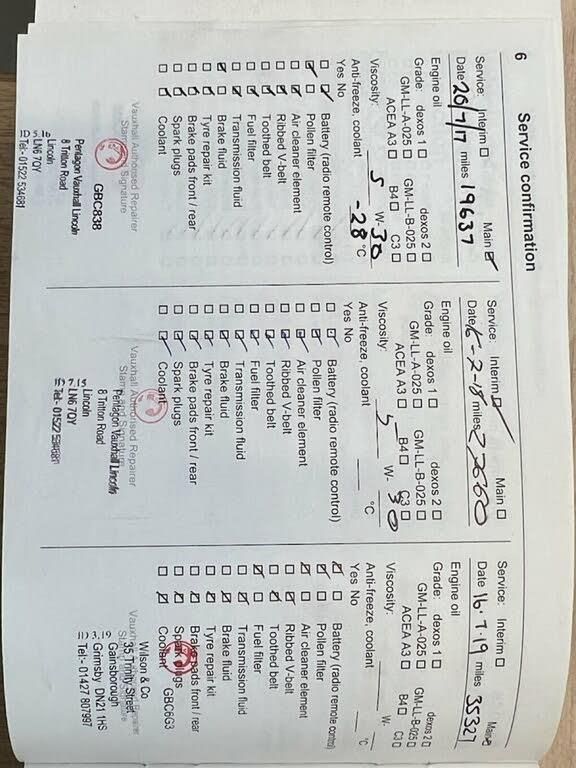 6
Service confirmation
Service: Interim ☐ Main ☑
Date 20/7/17 miles 19637
Engine oil
Grade: dexos 1 ☐ dexos 2 ☐
GM-LL-A-025 ☐ GM-LL-B-025 ☐
ACEA A3 ☐ B4 ☐ C3 ☐
Viscosity: 5 W- 30
Anti-freeze, coolant -28 °C
Yes No
Battery (radio remote control)
Pollen filter
Air cleaner element
Ribbed V-belt
Toothed belt
Fuel filter
Transmission fluid
Brake fluid
Tyre repair kit
Brake pads front / rear
Spark plugs
Coolant
Vauxhall Authorised Repairer
Stamp Signature
GBC838
Pentagon Vauxhall Lincoln
8 Tritton Road
Lincoln
LN6 7QY
Tel:- 01522 534681
Service: Interim ☑ Main ☐
Date 15-2-18 miles 27660
Engine oil
Grade: dexos 1 ☐ dexos 2 ☐
GM-LL-A-025 ☐ GM-LL-B-025 ☐
ACEA A3 ☐ B4 ☐ C3 ☐
Viscosity: 5 W- 30
Anti-freeze, coolant °C
Yes No
Battery (radio remote control)
Pollen filter
Air cleaner element
Ribbed V-belt
Toothed belt
Fuel filter
Transmission fluid
Brake fluid
Tyre repair kit
Brake pads front / rear
Spark plugs
Coolant
Vauxhall Authorised Repairer
Stamp and Signature
Pentagon Vauxhall Lincoln
8 Tritton Road
Lincoln
LN6 7QY
Tel:- 01522 534681
Service: Interim ☐ Main ☑
Date 16.7.19 miles 35327
Engine oil
Grade: dexos 1 ☐ dexos 2 ☐
GM-LL-A-025 ☐ GM-LL-B-025 ☐
ACEA A3 ☐ B4 ☐ C3 ☐
Viscosity: W-
Anti-freeze, coolant °C
Yes No
Battery (radio remote control)
Pollen filter
Air cleaner element
Ribbed V-belt
Toothed belt
Fuel filter
Transmission fluid
Brake fluid
Tyre repair kit
Brake pads front / rear
Spark plugs
Coolant GBC6G3
Wilson & Co
35 Trinity Street
Gainsborough
Grimsby DN21 1HS
Tel:- 01427 807997